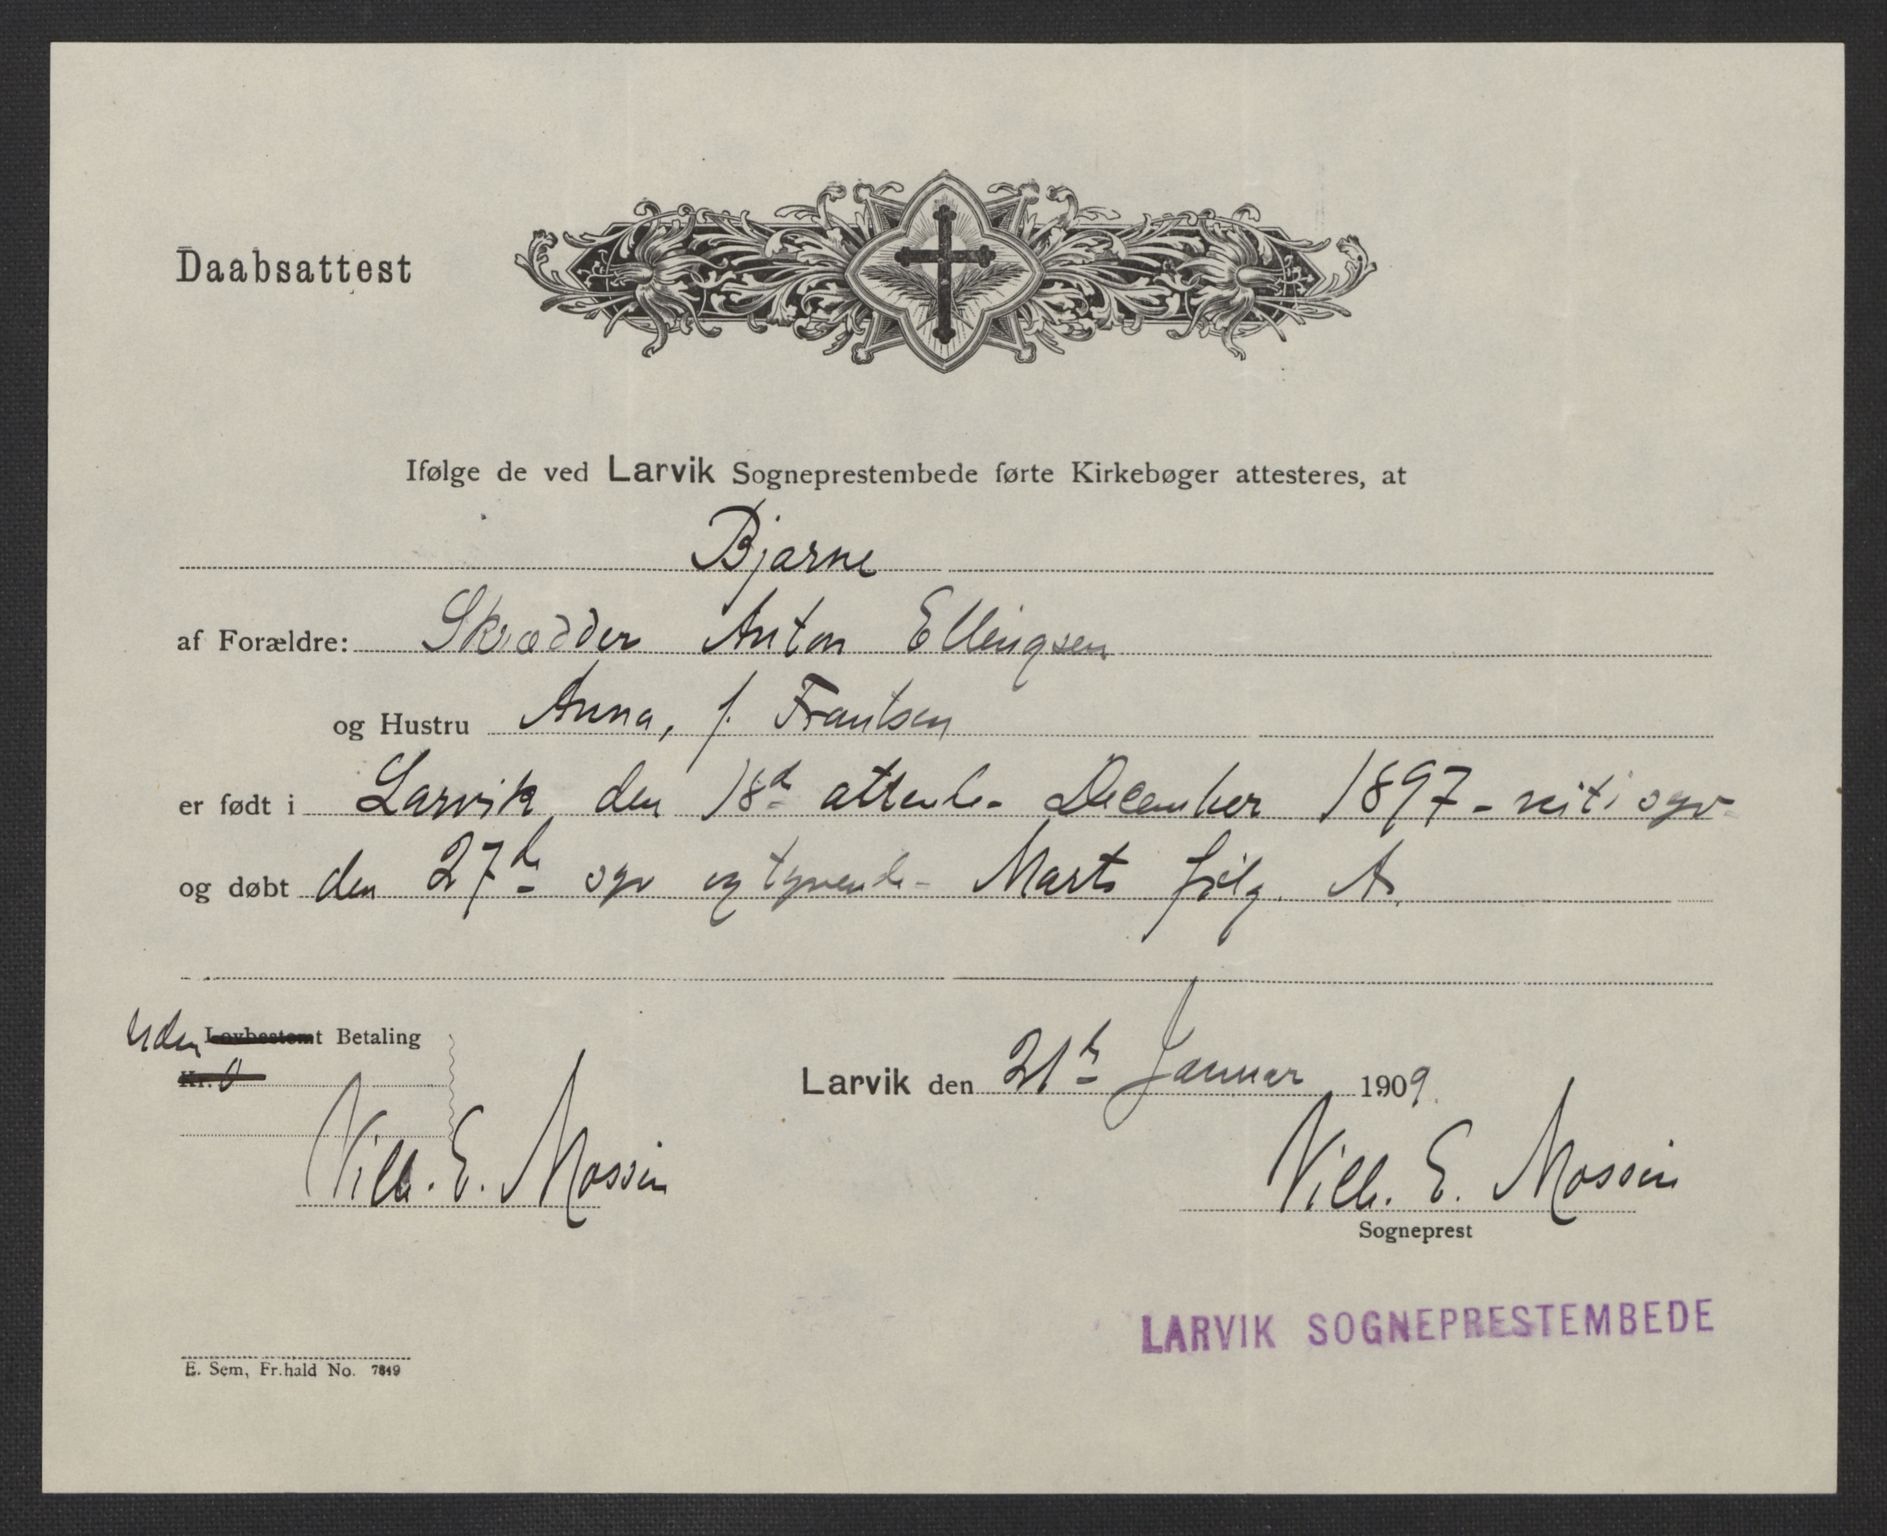 Daabsattest
Ifølge de ved Larvik Sogneprestembede førte Kirkebøger attesteres, at
Bjarne
af Forældre: Skrædder Anton Ellingsen
og Hustru Anna, f. Frantsen
er født i Larvik den 18de attende December 1897 - niti syv -
og døbt den 27de syv og tyvende - Marts følg. A.
uden Lovbestemt Betaling
Kr. 0
Larvik den 21de Januar 1909.
Vilh. E. Mossin Vilh. E. Mossin
Sogneprest
LARVIK SOGNEPRESTEMBEDE
E. Sem, Fr.hald No. 7849